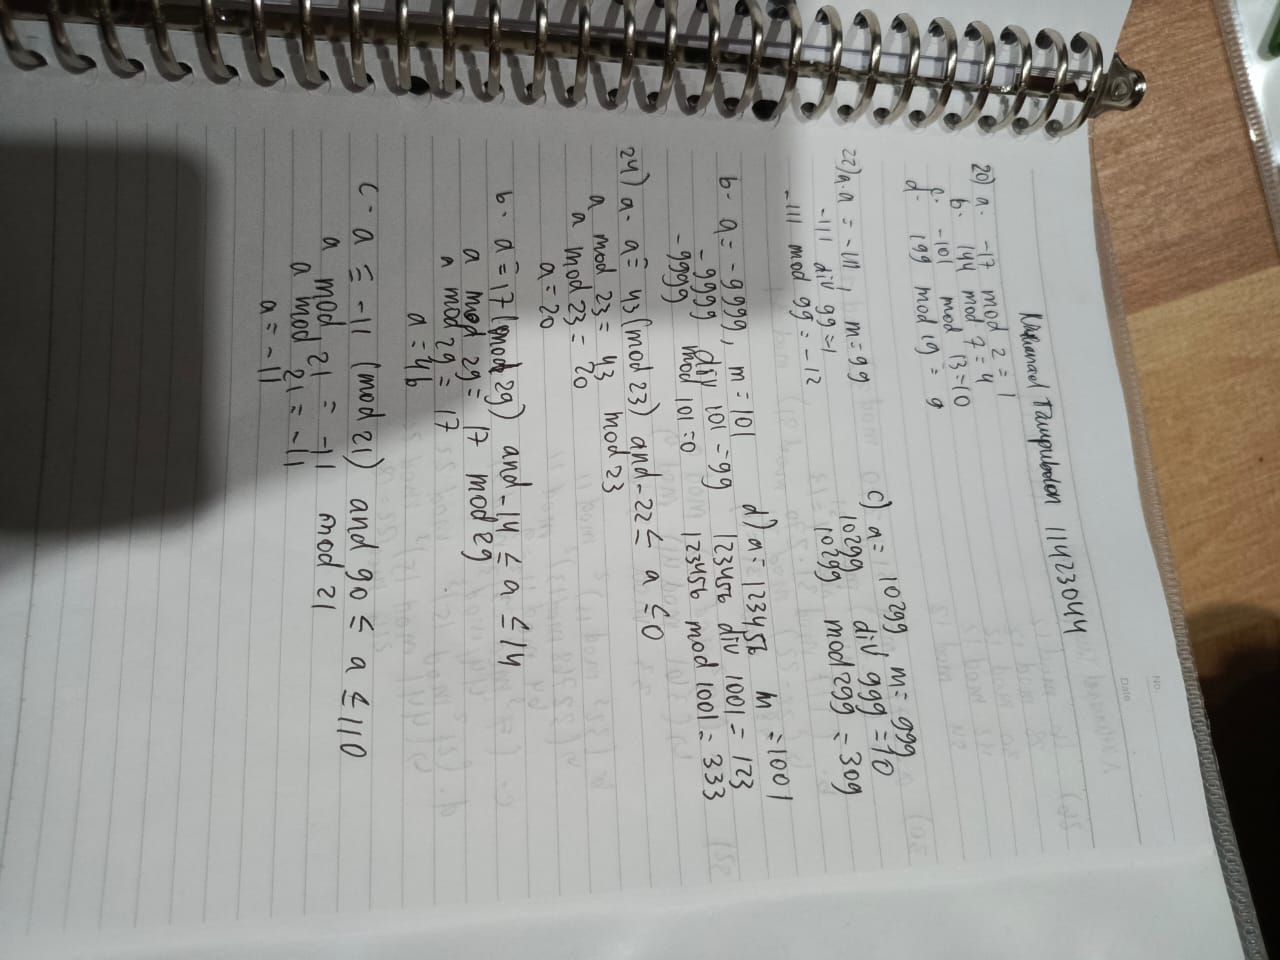 No.
Date
Tampubolon 11423044
20) a. -17 mod 2 = 1
b. 144 mod 7 = 4
c. -101 mod 13 = 10
d. 199 mod 19 = 9
22) a. a = -111, m = 99
-111 div 99 = 1
-111 mod 99 = -12
b. a = -9999, m = 101
-9999 div 101 = 99
-9999 mod 101 = 0
c) a = 10299, m = 999
10299 div 999 = 10
10299 mod 299 = 309
d) a = 123456 m = 1001
123456 div 1001 = 123
123456 mod 1001 = 333
24) a. a ≡ 43 (mod 23) and -22 ≤ a ≤ 0
a mod 23 = 43 mod 23
a mod 23 = 20
a = 20
b. a ≡ 17 (mod 29) and -14 ≤ a ≤ 14
a mod 29 = 17 mod 29
a mod 29 = 17
a = 46
c. a ≡ -11 (mod 21) and 90 ≤ a ≤ 110
a mod 21 = -11 mod 21
a mod 21 = -11
a = -11